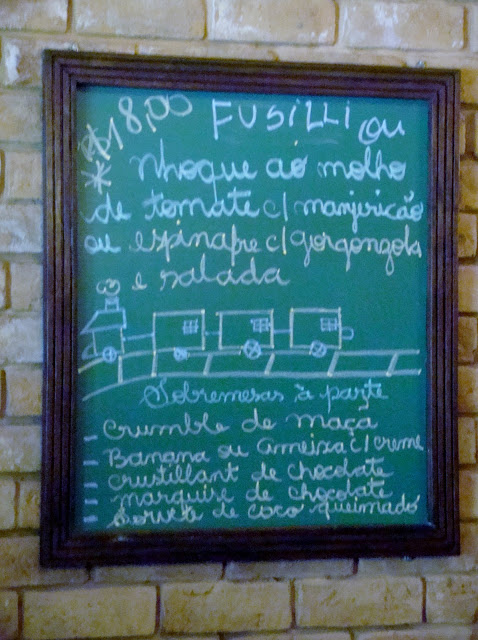 R$18,00 FUSILLI ou
* Nhoque ao molho
de tomate c/ manjericão
ou espinafre c/ gorgonzola
e salada
Sobremesas à parte
- Crumble de maça
- Banana ou Ameixa c/ creme
- crustillant de chocolate
- marquire de chocolate
- Sorvete de coco queimado